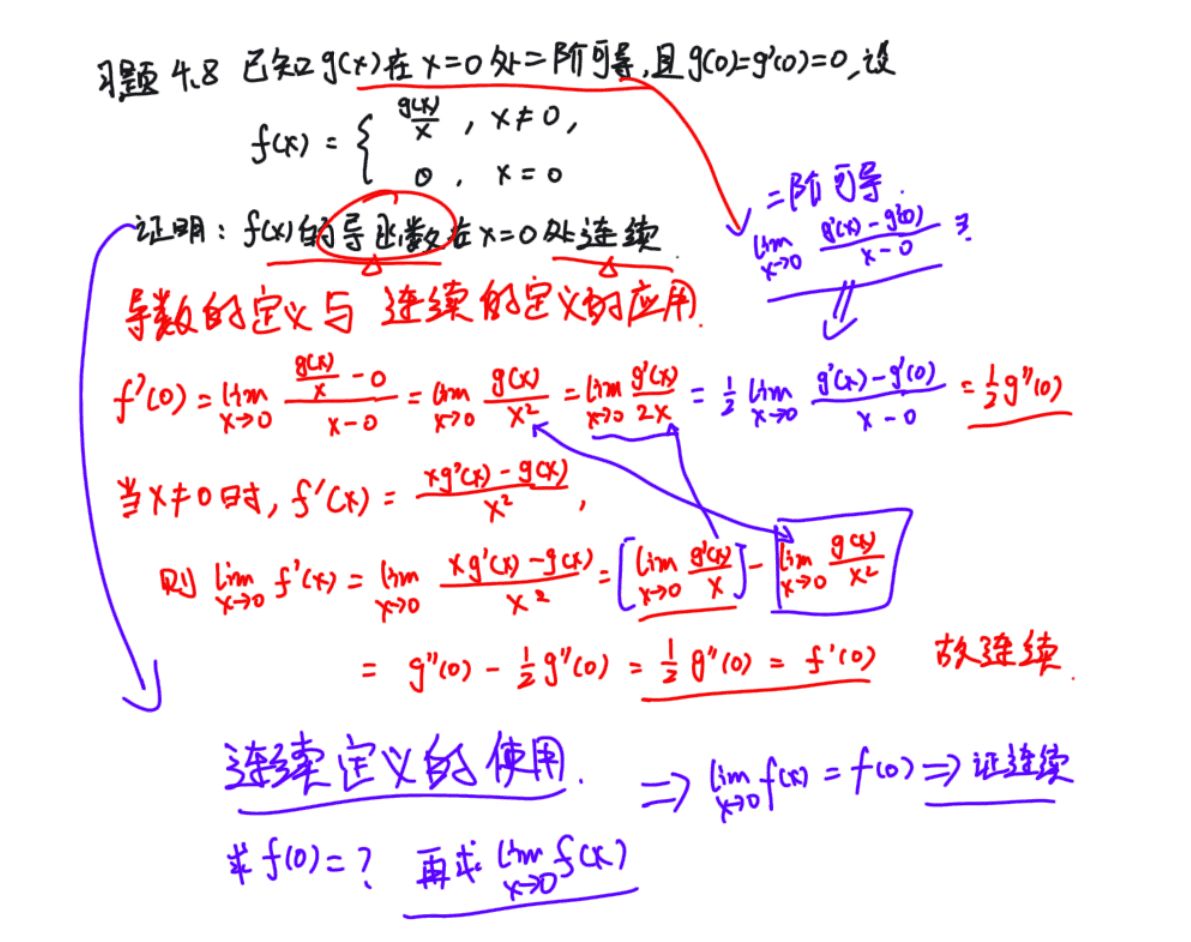 习题 4.8 已知 g(x) 在 x=0 处二阶可导, 且 g(0)=g'(0)=0, 设
f(x) = { g(x)/x , x≠0,
0 , x=0
二阶可导.
lim_{x→0} (g'(x)-g'(0))/(x-0) ?
证明: f(x) 的导函数在 x=0 处连续.
导数的定义与 连续的定义的应用.
f'(0) = lim_{x→0} (g(x)/x - 0)/(x-0) = lim_{x→0} g(x)/x² = lim_{x→0} g'(x)/2x = 1/2 lim_{x→0} (g'(x)-g'(0))/(x-0) = 1/2 g''(0)
当 x≠0 时, f'(x) = (xg'(x)-g(x))/x² ,
则 lim_{x→0} f'(x) = lim_{x→0} (xg'(x)-g(x))/x² = [lim_{x→0} g'(x)/x] - lim_{x→0} g(x)/x²
= g''(0) - 1/2 g''(0) = 1/2 g''(0) = f'(0) 故连续.
连续定义的使用. ⇒ lim_{x→0} f(x) = f(0) ⇒ 证连续
求 f(0)=? 再求 lim_{x→0} f(x)